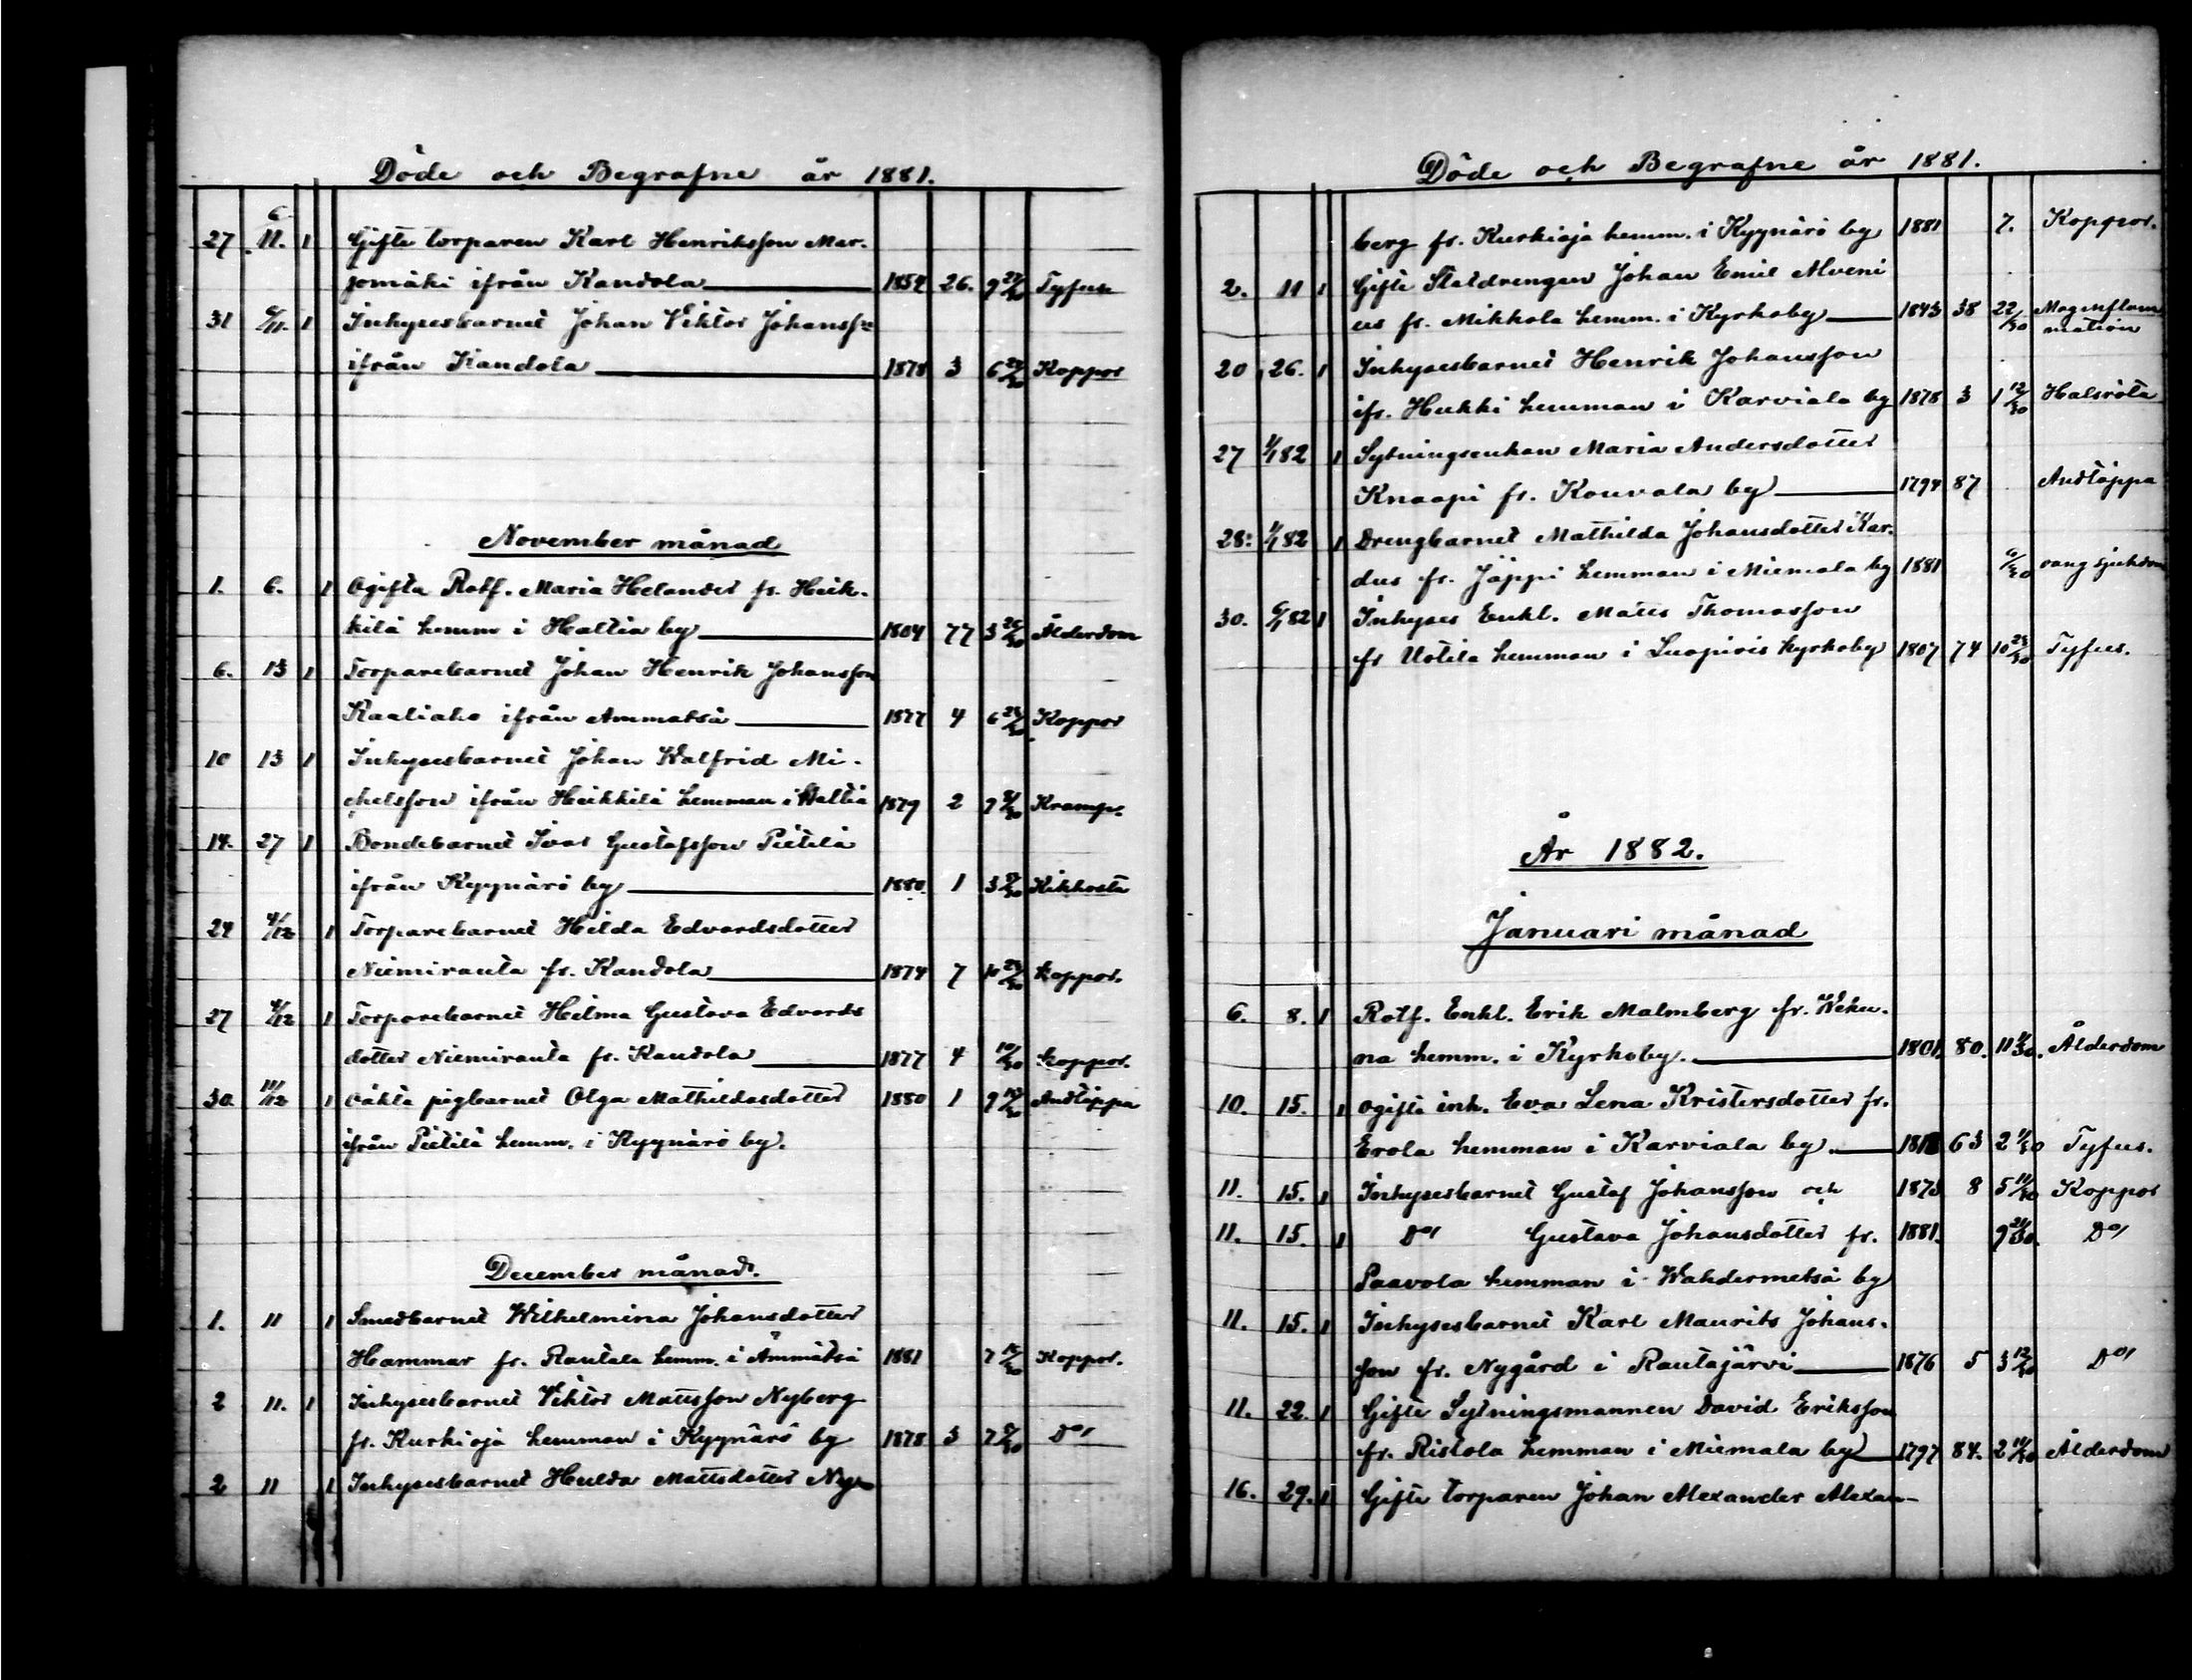 Döde och Begrafne år 1881.
27 6/11. 1 Gifte torparen Karl Henriksson Mar-
jomäki ifrån Kandola 1854 26. 9 27/30 Tyfus
31 6/11. 1 Inhysesbarnet Johan Viktor Johansson
ifrån Kandola 1878 3 6 Koppor
November månad
1. 6. 1 Ogifta Rotf. Maria Helander fr. Heik-
kilä hemm i Haltia by 1804 77 3 26/30 Ålderdom
6. 13 1 Torparebarnet Johan Henrik Johansson
Kaaliaho ifrån Ammatsä 1877 4 6 Koppor
10 13 1 Inhysesbarnet Johan Walfrid Mi-
chelsson ifrån Heikkilä hemman i Haltia 1879 2 7 Kramp.
14. 27 1 Bondebarnet Ivar Gustafsson Pietilä
ifrån Kyynärö by 1880. 1 3 Kikhosta
24 4/12 1 Torparebarnet Hilda Edvardsdotter
Niemiranta fr. Kandola 1874 7 10 23/30 koppor.
27 4/12 1 Torparebarnet Hilma Gustava Edvards
dotter Niemiranta fr. Kandola 1877 4 10/30 koppor.
30. 11/12 1 oäkta pigbarnet Olga Mathildasdotter 1880 1 9 Andtäppa
ifrån Pietilä hemm. i Kyynärö by.
December månad.
1. 11 1 Smedbarnet Wilhelmina Johansdotter
Hammar fr. Rautala hemm. i Ämmätsä 1881 7 Koppor.
2 11. 1 Inhysesbarnet Viktor Mattsson Nyberg
fr. Kurkioja hemman i Kyynärö by 1878 3 7 D:o
2 11 1 Inhysesbarnet Hulda Mattsdotter Ny-
Döde och Begrafne år 1881.
berg fr. Kurkioja hemm. i Kyynärö by 1881 7. Koppor.
2. 11 1 Gifte Statdrengen Johan Emil Alveni
us fr. Mikkola hemm. i Kyrkoby 1843 38 22/30 Magenflam
mation
20 26. 1 Inhysesbarnet Henrik Johansson
ifr. Hukki hemman i Karviala by 1878 3 1 12/30 Halsröta
27 1/1 82 1 Sytningsenkan Maria Andersdotter
Knaapi fr. Kouvala by 1794 87 Andtäppa
28. 1/1 82 1 Drengbarnet Mathilda Johansdotter Kar-
dus fr. Jäppi hemman i Miemala by 1881 6/30 oang sjukdom
30. 6/1 82 1 Inhyses Enkl. Matts Thomasson
fr Uotila hemman i Luopiois kyrkoby 1807 74 10 23/30 Tyfus.
År 1882.
Januari månad
6. 8. 1 Rotf. Enkl. Erik Malmberg fr. Weku-
na hemm. i Kyrkoby. 1801. 80. 11 Ålderdom
10. 15. 1 ogifta inh. Eva Lena Kristersdotter fr.
Erola hemman i Karviala by. 1818 63 2 Tyfus.
11. 15. 1 Inhysesbarnet Gustaf Johansson och 1873 8 5 11/30 Koppor
11. 15. 1 D:o Gustava Johansdotter fr. 1881. 9 21/30. D:o
Paavola hemman i Wahdermetsä by
11. 15. 1 Inhysesbarnet Karl Maurits Johans-
son fr. Nygård i Rautajärvi 1876 5 3 12/30 D:o
11. 22. 1 Gifte Sytningsmannen David Eriksson
fr. Ristola hemman i Miemala by 1797 84. 2 Ålderdom
16. 29. 1 Gifte torparen Johan Alexander Alexan-